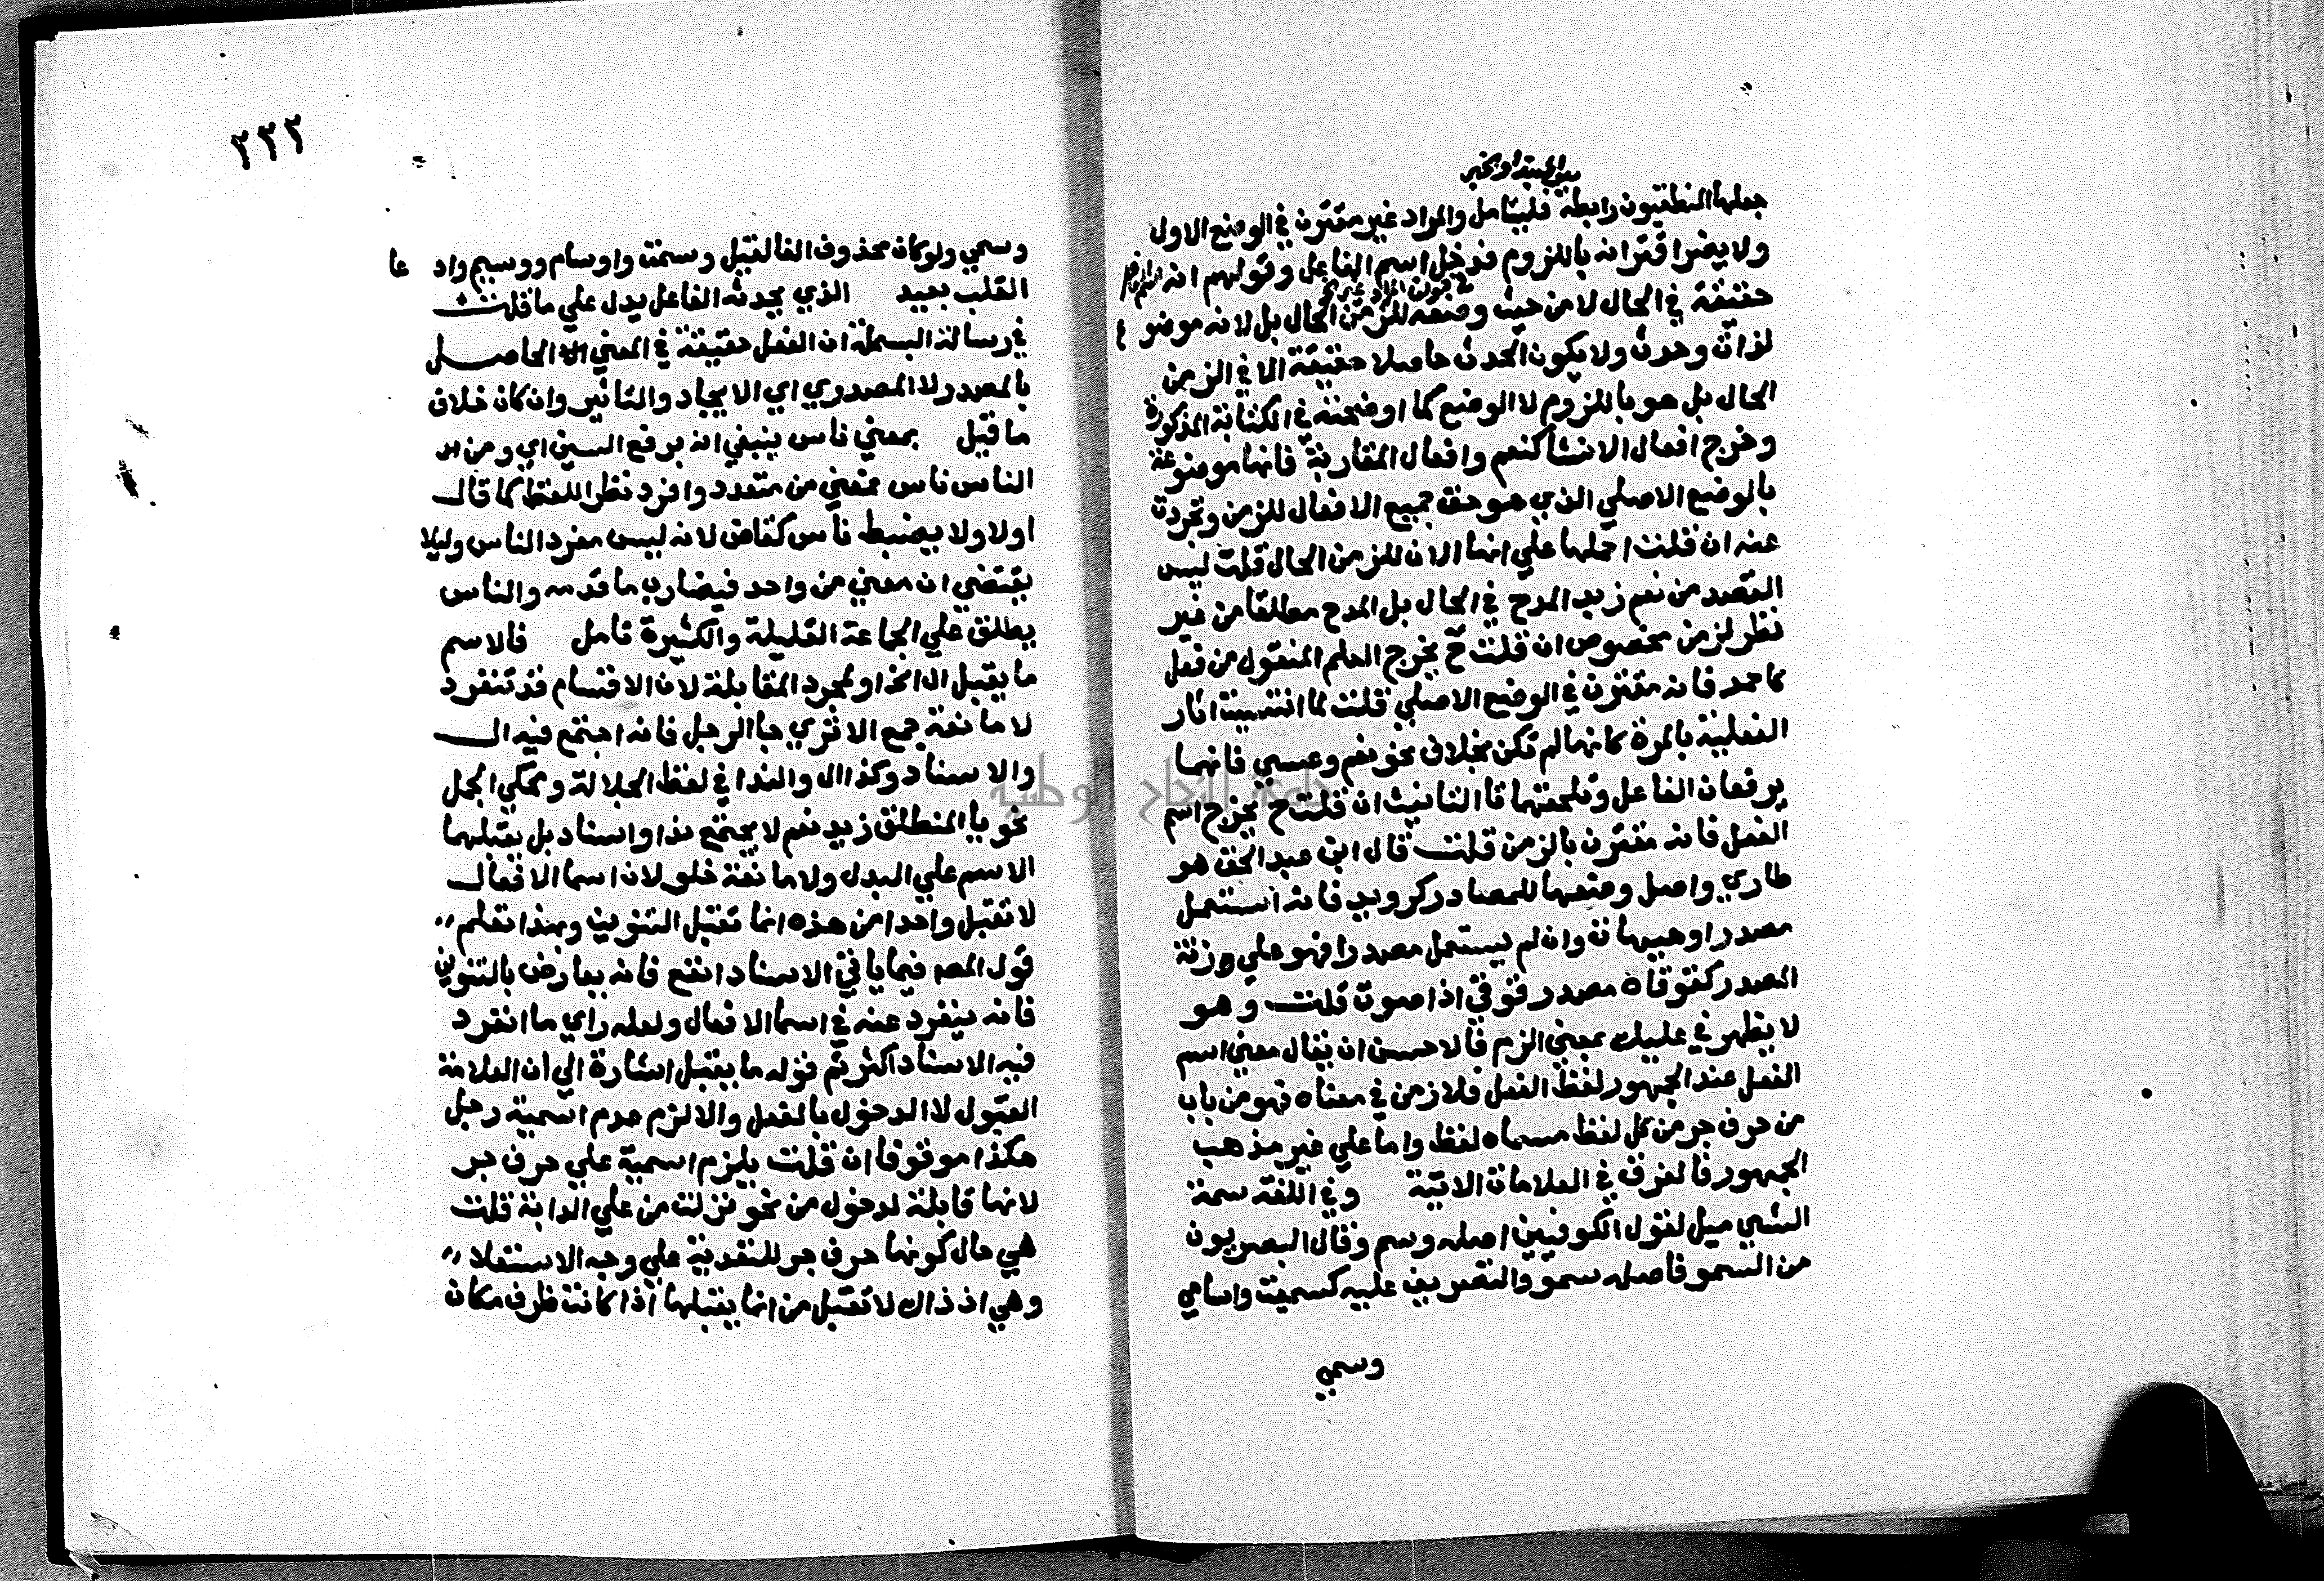 بين المبتدا والخبر
جعلها المنطقيون رابطة فليتامل والمراد غير مقترن في الوضع الاول
ولا يضر اقترانه باللزوم فدخل اسم الفاعل وقولهم انه
حقيقة في الحال لا من حيث وضعه للزمن الحال بل لانه موضوع
لذات وحدث ولا يكون الحدث حاصلا حقيقة الا في الزمن
الحال بل هو باللزوم لا الوضع كما اوضحته في الكتابة المذكورة
وخرج افعال الانشا كنعم وافعال المقاربة فانها موضوعة
بالوضع الاصلي الذي هو حق جميع الافعال للزمن وتجردت
عنه ان قلت احملها علي انها الان للزمن الحال قلت ليس
القصد من نعم زيد المدح في الحال بل المدح مطلقا من غير
نظر لزمن مخصوص ان قلت ح يخرج العلم المنقول من فعل
كاحمد فانه مقترن في الوضع الاصلي قلت لما انتسيت اثار
الفعلية بالمرة كانها لم تكن بخلاف نحو نعم وعسي فانهما
يرفعان الفاعل وتلحقهما تا التانيث ان قلت ح يخرج اسم
الفعل فانه مقترن بالزمن قلت قال ابن عبد الحق هو
طاري واصل وضعها للمصادر كرويد فانه استعمل
مصدرا وهيهات وان لم يستعمل مصدرا فهو علي وزنة
المصدر كقوقاة مصدر قوقي اذا صوت قلت وهو
لا يظهر في عليك بمعني الزم فالاحسن ان يقال معني اسم
الفعل عند الجمهور لفظ الفعل فلا زمن في معناه فهو من باب
من حرف جر من كل لفظ مسماه لفظ واما علي غير مذهب
الجمهور فالفرق في العلامات الاتية وفي اللغة سمة
الشي ميل لقول الكوفيين اصله وسم وقال البصريون
من السمو فاصله سمو والتصريف عليه كسميت واسامي
وسمي
٢٢٢
وسمي ولو كان محذوف الفا لقيل وسمت واوسام ووسيم وادعا
القلب بعيد الذي يحدثه الفاعل يدل علي ما قلت
في رسالة البسملة ان الفعل حقيقة في المعني الحاصل
بالمصدر لا المصدري اي الايجاد والتاثير وان كان خلاف
ما قيل بمعني ناس ينبغي انه برفع السين اي ومن
الناس ناس فمعني من متعدد وافرد نظر اللفظ كما قال
اولا ولا يضبط ناس كقاض لانه ليس مفرد الناس وليلا
يقتضي ان معني من واحد فيضارب ما قدمه والناس
يطلق علي الجماعة القليلة والكثيرة تامل فالاسم
ما يقبل ال الخ او لمجرد المقابلة لان الاقسام قد تنفرد
لا مانعة جمع الا تري جا الرجل فانه اجتمع فيه ال
والاسناد وكذا ال والندا في لفظ الجلالة ومحكي الجمل
نحو يا المنطلق زيد نعم لا يجتمع ندا واسناد بل يقبلهما
الاسم علي البدل ولا مانعة خلو لان اسما الافعال
لا تقبل واحدا من هذه انما تقبل التنوين وبهذا تعلم
قول المص فيما ياتي الاسناد انفع فانه يعارض بالتنوين
فانه ينفرد عنه في اسما الافعال ولعله راي ما انفرد
فيه الاسناد اكثر ثم قوله ما يقبل اشارة الي ان العلامة
القبول لا الدخول بالفعل والا لزم عدم اسمية رجل
هكذا موقوفا ان قلت يلزم اسمية علي حرف جر
لانها قابلة لدخول من نحو نزلت من علي الدابة قلت
هي حال كونها حرف جر للتعدية علي وجه الاستعلا
وهي اذ ذاك لا تقبل من انما يقبلها اذا كانت ظرف مكان
جامعة النجاح الوطنية